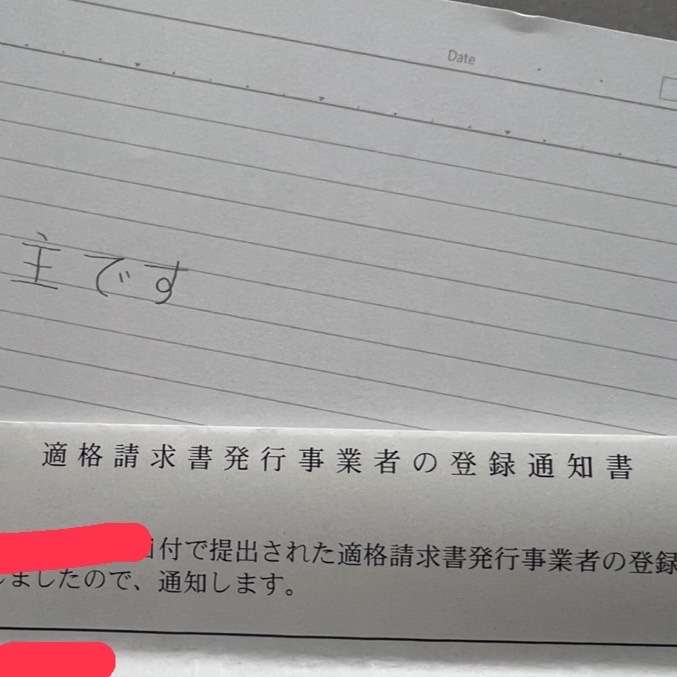 Date
主です
適格請求書発行事業者の登録通知書
日付で提出された適格請求書発行事業者の登録
しましたので、通知します。